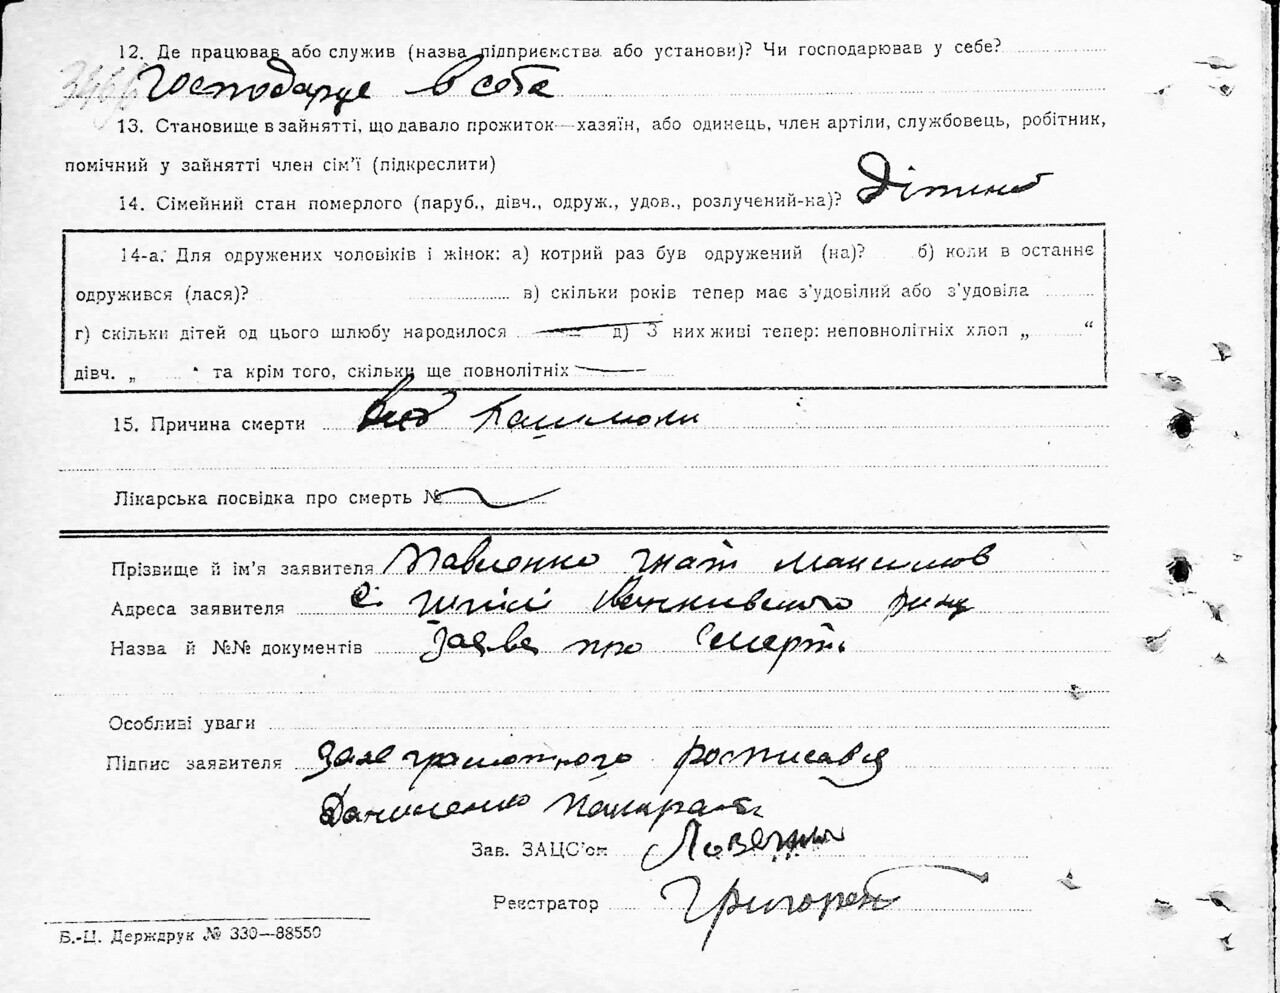 12. Де працював або служив (назва підприємства або установи)? Чи господарював у себе?
Господарує в себе
13. Становище в зайнятті, що давало прожиток—хазяїн, або одинець, член артіли, службовець, робітник,
помічний у зайнятті член сім'ї (підкреслити)
14. Сімейний стан померлого (паруб., дівч., одруж., удов., розлучений-на)? Дитина
14-а. Для одружених чоловіків і жінок: а) котрий раз був одружений (на)? б) коли в останнє
одружився (лася)? в) скільки років тепер має з'удовілий або з'удовіла
г) скільки дітей од цього шлюбу народилося — д) З них живі тепер: неповнолітніх хлоп „ “
дівч. „ “ та крім того, скільки ще повнолітніх —
15. Причина смерти від
Лікарська посвідка про смерть №
Прізвище й ім'я заявителя Павленко Гнат Максимов
Адреса заявителя с.
Назва й №№ документів Заява про смерть
Особливі уваги
Підпис заявителя розписався
Даниленко
Зав. ЗАЦС'ом
Реєстратор
Б.-Ц. Держдрук № 330—88550